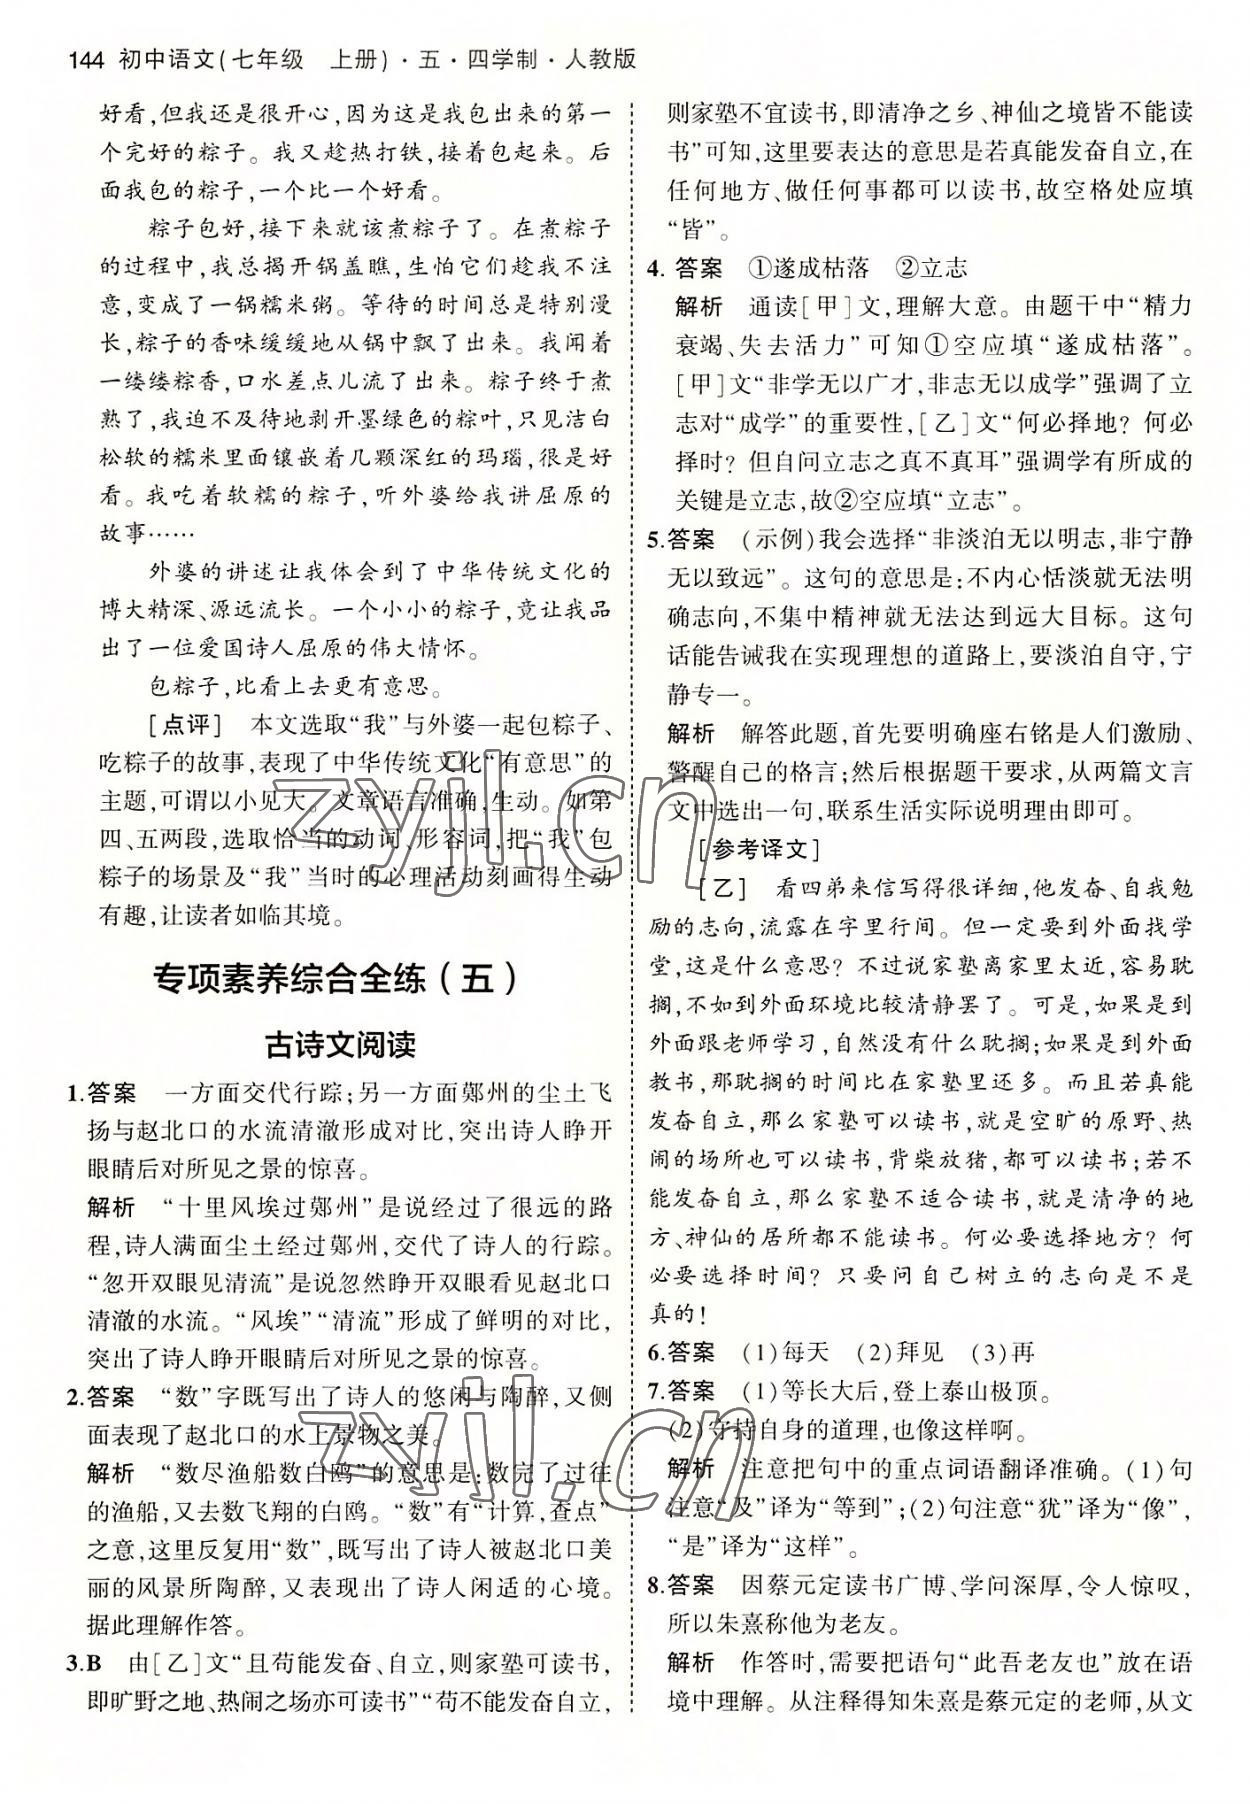 144 初中语文(七年级　上册)·五·四学制·人教版
好看,但我还是很开心,因为这是我包出来的第一
个完好的粽子。我又趁热打铁,接着包起来。后
面我包的粽子,一个比一个好看。
粽子包好,接下来就该煮粽子了。在煮粽子
的过程中,我总揭开锅盖瞧,生怕它们趁我不注
意,变成了一锅糯米粥。等待的时间总是特别漫
长,粽子的香味缓缓地从锅中飘了出来。我闻着
一缕缕粽香,口水差点儿流了出来。粽子终于煮
熟了,我迫不及待地剥开墨绿色的粽叶,只见洁白
松软的糯米里面镶嵌着几颗深红的玛瑙,很是好
看。我吃着软糯的粽子,听外婆给我讲屈原的
故事……
外婆的讲述让我体会到了中华传统文化的
博大精深、源远流长。一个小小的粽子,竟让我品
出了一位爱国诗人屈原的伟大情怀。
包粽子,比看上去更有意思。
[点评]　本文选取“我”与外婆一起包粽子、
吃粽子的故事,表现了中华传统文化“有意思”的
主题,可谓以小见大。文章语言准确,生动。如第
四、五两段,选取恰当的动词、形容词,把“我”包
粽子的场景及“我”当时的心理活动刻画得生动
有趣,让读者如临其境。
专项素养综合全练(五)
古诗文阅读
1.答案　一方面交代行踪;另一方面鄚州的尘土飞
扬与赵北口的水流清澈形成对比,突出诗人睁开
眼睛后对所见之景的惊喜。
解析　“十里风埃过鄚州”是说经过了很远的路
程,诗人满面尘土经过鄚州,交代了诗人的行踪。
“忽开双眼见清流”是说忽然睁开双眼看见赵北口
清澈的水流。“风埃”“清流”形成了鲜明的对比,
突出了诗人睁开眼睛后对所见之景的惊喜。
2.答案　“数”字既写出了诗人的悠闲与陶醉,又侧
面表现了赵北口的水上景物之美。
解析　“数尽渔船数白鸥”的意思是:数完了过往
的渔船,又去数飞翔的白鸥。“数”有“计算,查点”
之意,这里反复用“数”,既写出了诗人被赵北口美
丽的风景所陶醉,又表现出了诗人闲适的心境。
据此理解作答。
3.B　由[乙]文“且苟能发奋、自立,则家塾可读书,
即旷野之地、热闹之场亦可读书”“苟不能发奋自立,
则家塾不宜读书,即清净之乡、神仙之境皆不能读
书”可知,这里要表达的意思是若真能发奋自立,在
任何地方、做任何事都可以读书,故空格处应填
“皆”。
4.答案　①遂成枯落　②立志
解析　通读[甲]文,理解大意。由题干中“精力
衰竭、失去活力”可知①空应填“遂成枯落”。
[甲]文“非学无以广才,非志无以成学”强调了立
志对“成学”的重要性,[乙]文“何必择地？何必
择时？但自问立志之真不真耳”强调学有所成的
关键是立志,故②空应填“立志”。
5.答案　(示例)我会选择“非淡泊无以明志,非宁静
无以致远”。这句的意思是:不内心恬淡就无法明
确志向,不集中精神就无法达到远大目标。这句
话能告诫我在实现理想的道路上,要淡泊自守,宁
静专一。
解析　解答此题,首先要明确座右铭是人们激励、
警醒自己的格言;然后根据题干要求,从两篇文言
文中选出一句,联系生活实际说明理由即可。
[参考译文]
[乙]　看四弟来信写得很详细,他发奋、自我勉
励的志向,流露在字里行间。但一定要到外面找学
堂,这是什么意思？不过说家塾离家里太近,容易耽
搁,不如到外面环境比较清静罢了。可是,如果是到
外面跟老师学习,自然没有什么耽搁;如果是到外面
教书,那耽搁的时间比在家塾里还多。而且若真能
发奋自立,那么家塾可以读书,就是空旷的原野、热
闹的场所也可以读书,背柴放猪,都可以读书;若不
能发奋自立,那么家塾不适合读书,就是清净的地
方、神仙的居所都不能读书。何必要选择地方？何
必要选择时间？只要问自己树立的志向是不是
真的！
6.答案　(1)每天　(2)拜见　(3)再
7.答案　(1)等长大后,登上泰山极顶。
(2)守持自身的道理,也像这样啊。
解析　注意把句中的重点词语翻译准确。(1)句
注意“及”译为“等到”;(2)句注意“犹”译为“像”,
“是”译为“这样”。
8.答案　因蔡元定读书广博、学问深厚,令人惊叹,
所以朱熹称他为老友。
解析　作答时,需要把语句“此吾老友也”放在语
境中理解。从注释得知朱熹是蔡元定的老师,从文
zyjl.cn
zyjl.cn